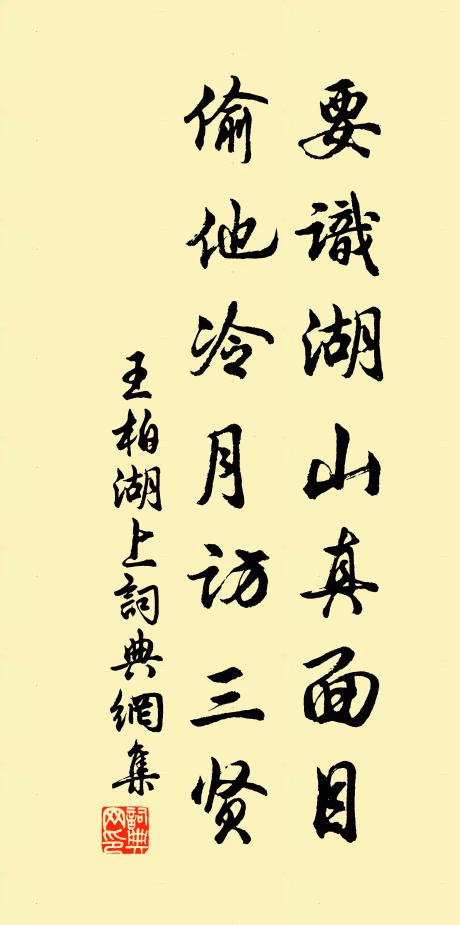 要識湖山真面目
偷他冷月访三贤
王柏湖上詞典網集
詞典网印